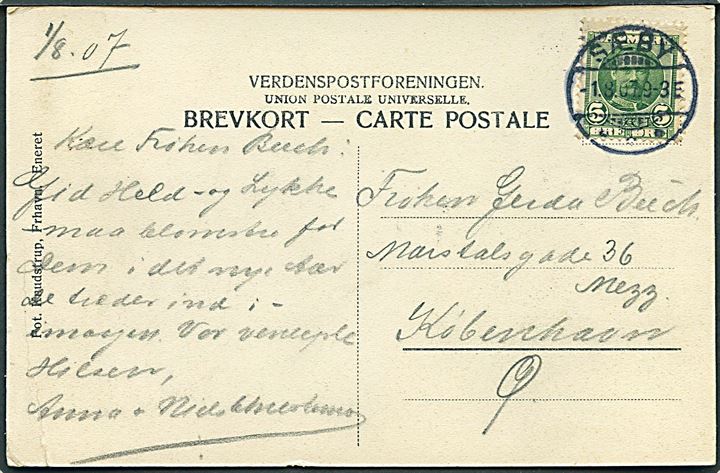 1/8. 07
VERDENSPOSTFORENINGEN.
UNION POSTALE UNIVERSELLE.
BREVKORT — CARTE POSTALE
SÆBY
-1.8.07.9-3E
5 5
Fot. Knudstrup, Frhavn. Eneret
Kære Frøken Buch:
Gid Held- og Lykke
maa blomstre for
Dem i det nye Aar
De træder ind i-
morgen. Vor venligste
Hilsen,
Anna + Niels
Frøken Gerda Buch.
Marstalsgade 36
Mezz.
København
Ø.